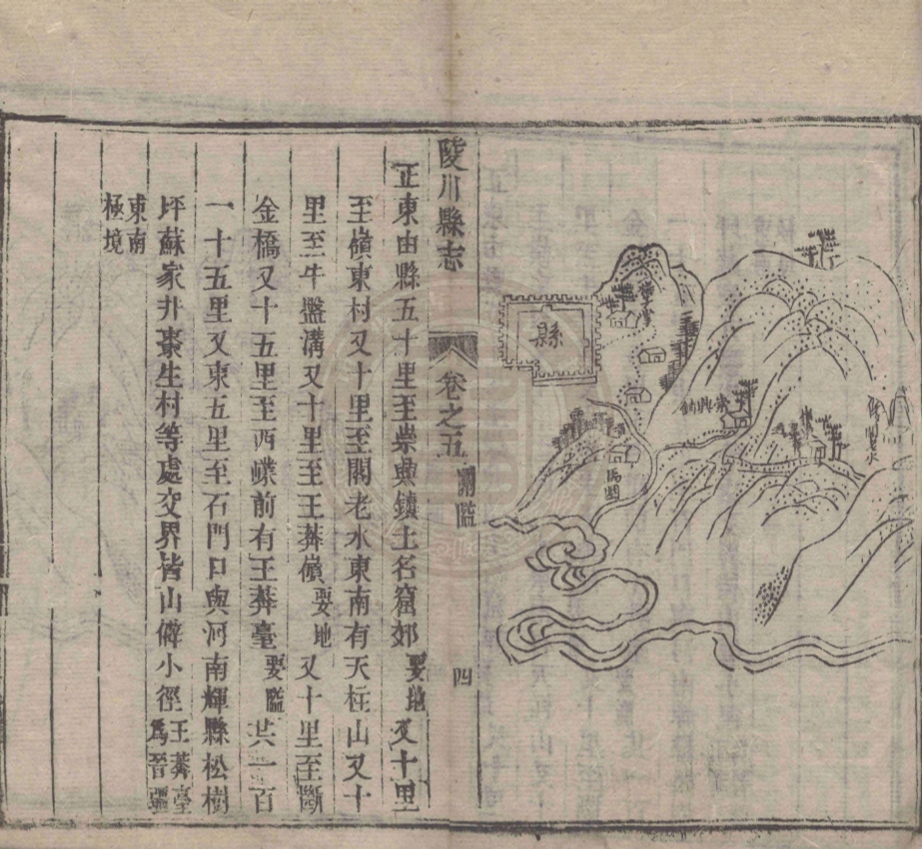 縣
崇興鎮
陵川縣志 卷之五 關隘 四
正東由縣五十里至崇興鎮土名窟郊要地又十里
至嶺東村又十里至閣老水東南有天柱山又十
里至牛盤溝又十里至王莽嶺要地又十里至斷
金橋又十五里至西前有王莽臺要隘共一百
一十五里又東五里至石門口與河南輝縣松樹
坪蘇家井棗生村等處交界皆山僻小徑王莽臺爲晉疆
東南極境